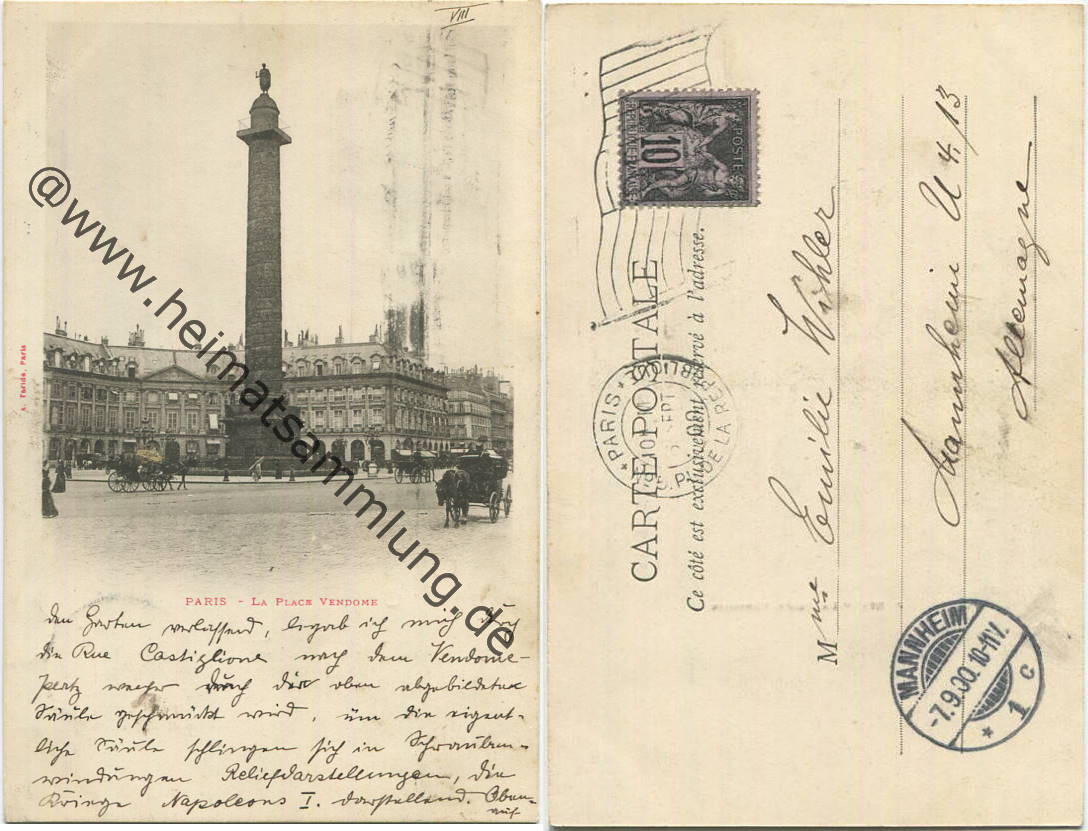 VIII
@www.heimatsammlung.de
A. Taride, Paris
PARIS - LA PLACE VENDOME
den Garten verlassend, begab ich mich durch
die Rue Castiglione nach dem Vendome-
platz welcher durch die oben abgebildete
Säule geschmückt wird, um die eigent-
liche Säule schlingen sich in Schrauben-
windungen Reliefdarstellungen, die
Kriege Napoleons I. darstellend. Oben-
auf
POSTE
10
REPUBLIQUE FRANCAISE
CARTE POSTALE
Ce côté est exclusivement réservé à l'adresse.
PARIS
SEPT
PL. DE LA REPUBLIQUE
Mme Emilie Wihler
Mannheim U 4, 13
Allemagne
MANNHEIM
-7.9.00.10-11V.
* 1 c